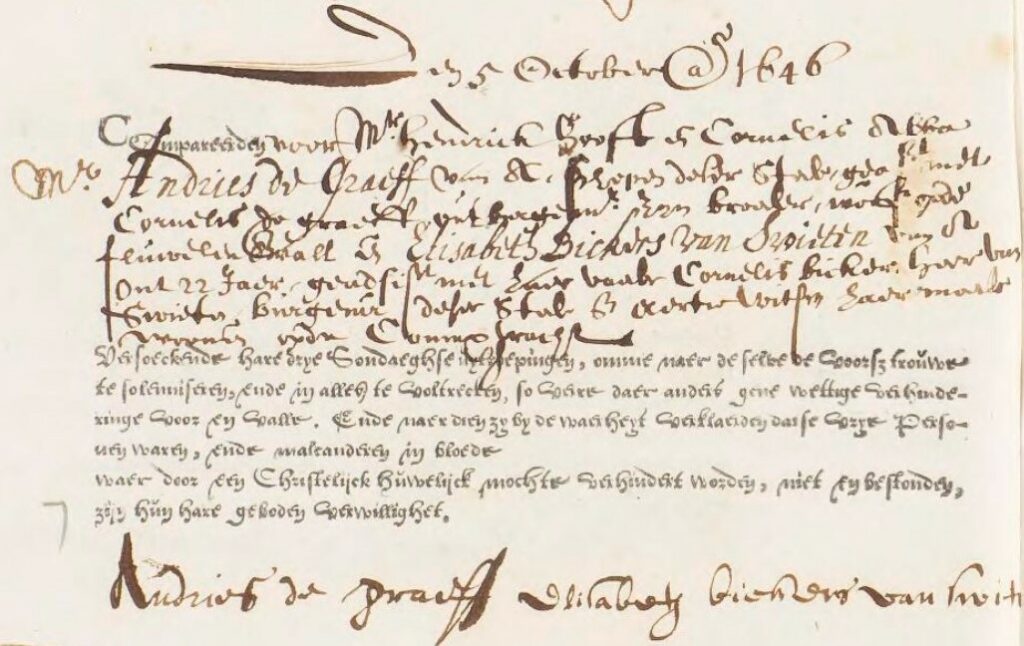 Den 5 October @° 1646
Compareerden voor Mr Hendrick Hooft en Cornelis Abba
Mr Andries de Graeff van A. Schepen deser Stadt, geas met
Cornelis de graeff, out burgemr zijn broeder, wont op de
fluwelen Burgwalt & Elisabeth Bickers van Swieten van A
out 22 Jaer, geadsist met haer vader Cornelis bicker heer van
Swieten, burgemr deser Stadt & Aertie Witsen haer moeder
wonen op de Conincxgracht
Versoeckende hare drye Sondaeghse uytroepingen, omme naer de selve de voorsz trouwe
te solemniseren, ende in alles te voltrecken, so verre daer anders gene wettige verhinde-
ringe voor en valle. Ende naer dien zy by de waerheyt verklaerden datse vrye Perso-
nen waren, ende malcanderen in bloede
waer door een Christelijck huwelijck mochte verhindert worden, niet en bestonden,
zijn hun hare geboden verwillighet.
Andries de graeff Elisabeth bickers van swiet